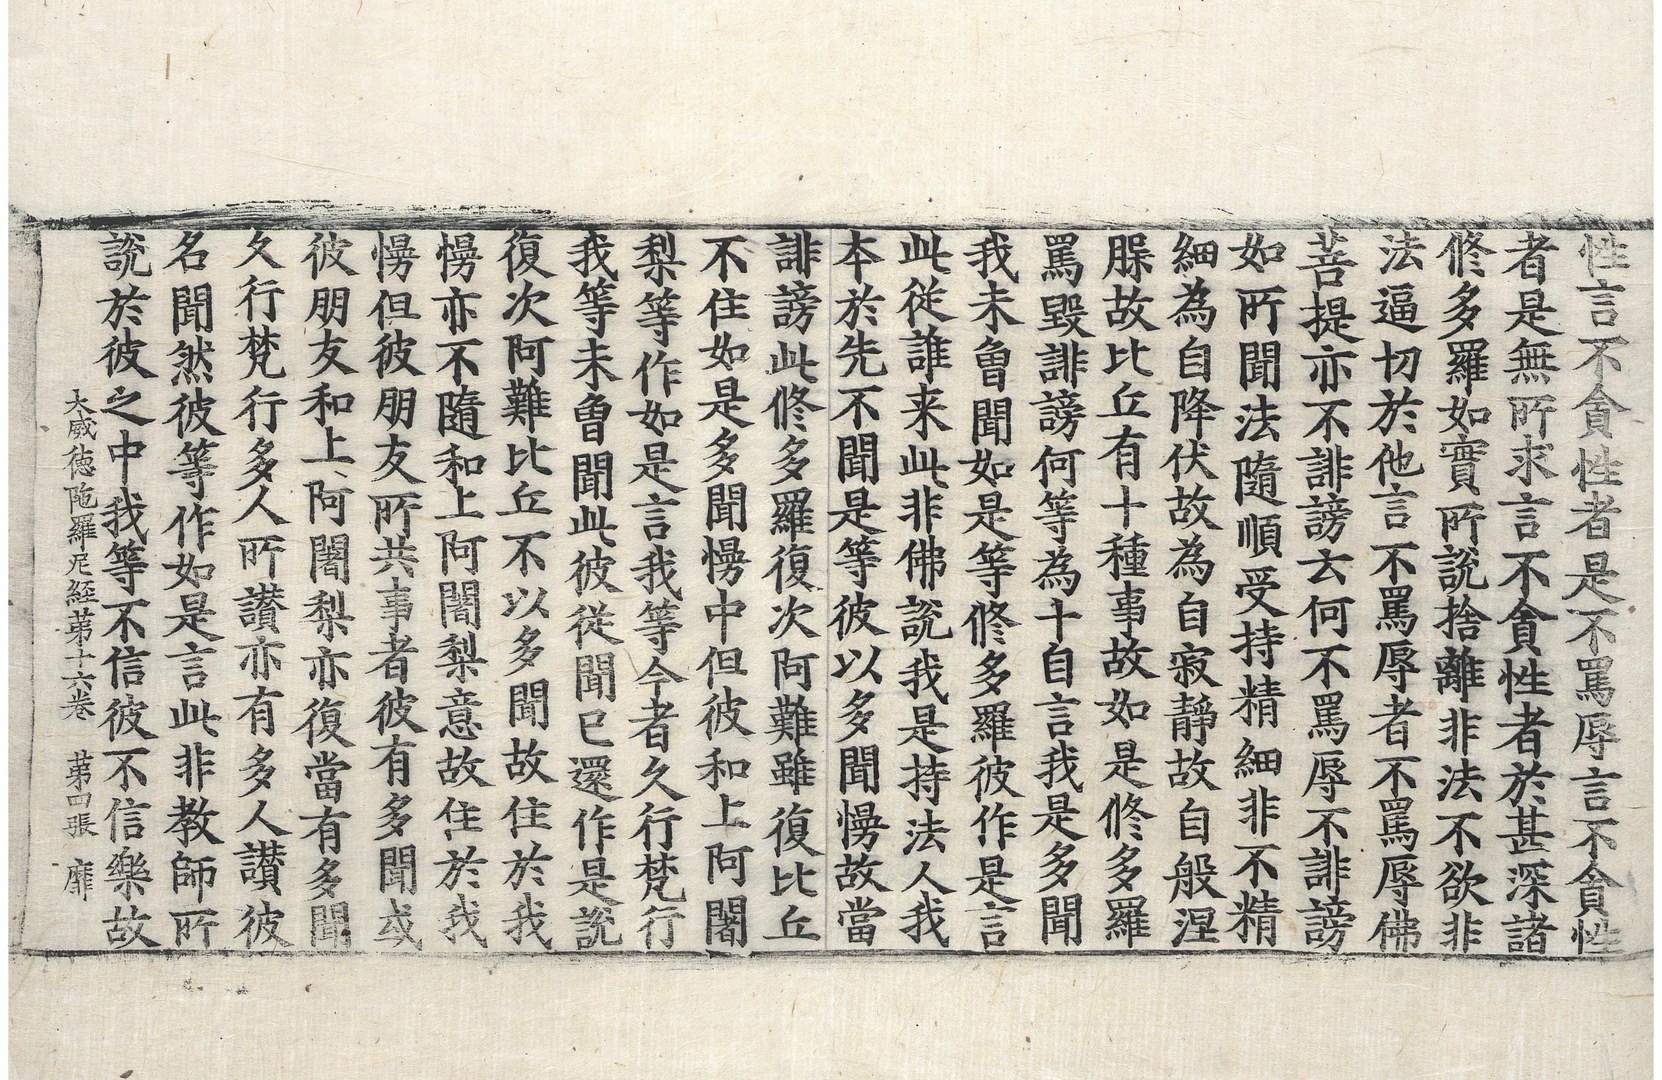 性言不貪性者是不罵辱言不貪性
者是無所求言不貪性者於甚深諸
修多羅如實所說捨離非法不欲非
法逼切於他言不罵辱者不罵辱佛
菩提亦不誹謗去何不罵辱不誹謗
如所聞法隨順受持精細非不精
細為自降伏故為自寂靜故自般涅
脲故比丘有十種事故如是修多羅
罵毀誹謗何等為十自言我是多聞
我未曾聞如是等修多羅彼作是言
此從誰来此非佛說我是持法人我
本於先不聞是等彼以多聞慢故當
誹謗此修多羅復次阿難雖復比丘
不住如是多聞慢中但彼和上阿闍
梨等作如是言我等今者久行梵行
我等未曾聞此彼從聞已還作是說
復次阿難比丘不以多聞故住於我
慢亦不隨和上阿闍梨意故住於我
慢但彼朋友所共事者彼有多聞或
彼朋友和上阿闍梨亦復當有多聞
久行梵行多人所讃亦有多人讃彼
名聞然彼等作如是言此非教師所
說於彼之中我等不信彼不信樂故
大威德陁羅尼経苐十六卷 苐四張 靡